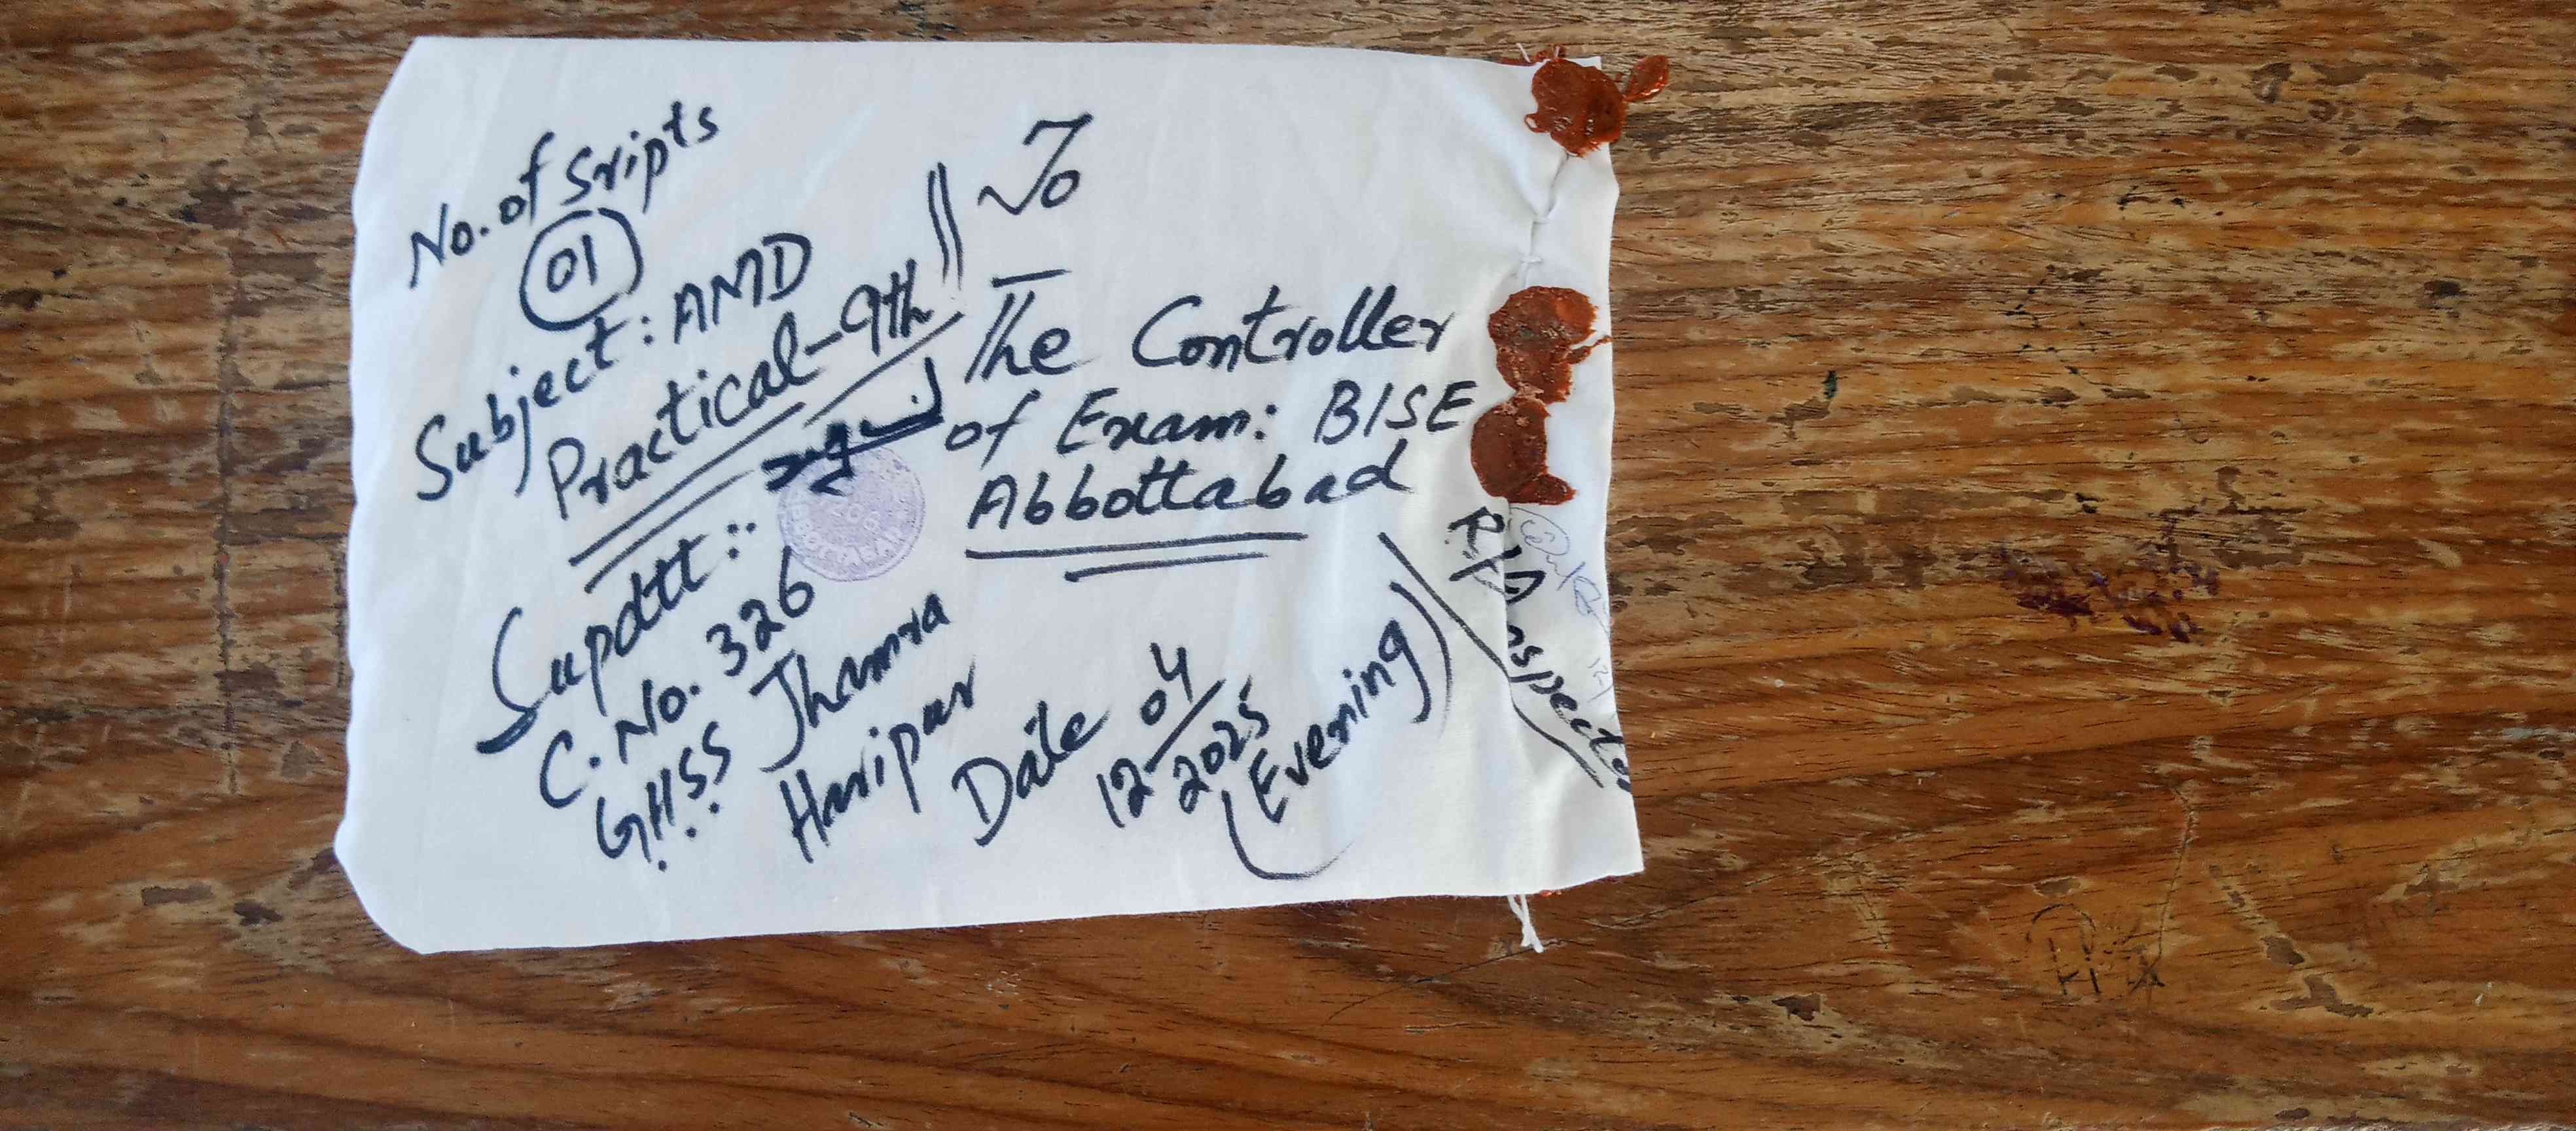 No. of Sripts
01
Subject: AMD
Practical-9th
Supdtt:
C. No. 326
GHSS Jhamra
Haripur
To
The Controller
of Exam: BISE
Abbottabad
Date 04
12-2025
(Evening)
R/A Inspector